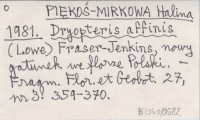 o PIĘKOŚ-MIRKOWA Halina
1981. Dryopteris affinis
(Lowe) Fraser-Jenkins, nowy
gatunek we florze Polski. –
Fragm. Flor. et Geobot. 27,
nr 3: 359-370.